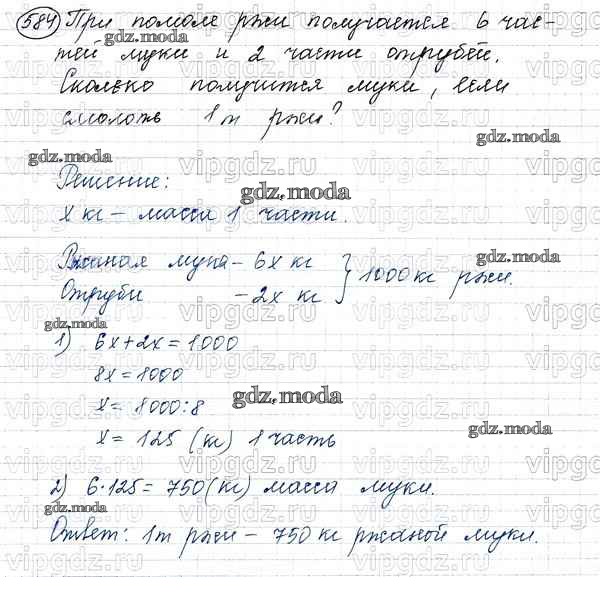 584 При помоле ржи получается 6 час-
тей муки и 2 части отрубей.
Сколько получится муки, если
смолоть 1т ржи?
Решение:
х кг – масса 1 части.
Ржаная мука – 6х кг
Отруби – 2х кг } 1000 кг ржи.
1) 6х+2х=1000
8х=1000
х= 1000:8
х= 125 (кг) 1 часть
2) 6·125= 750 (кг) масса муки.
Ответ: 1т ржи – 750 кг ржаной муки.
gdz.moda
vipgdz.ru